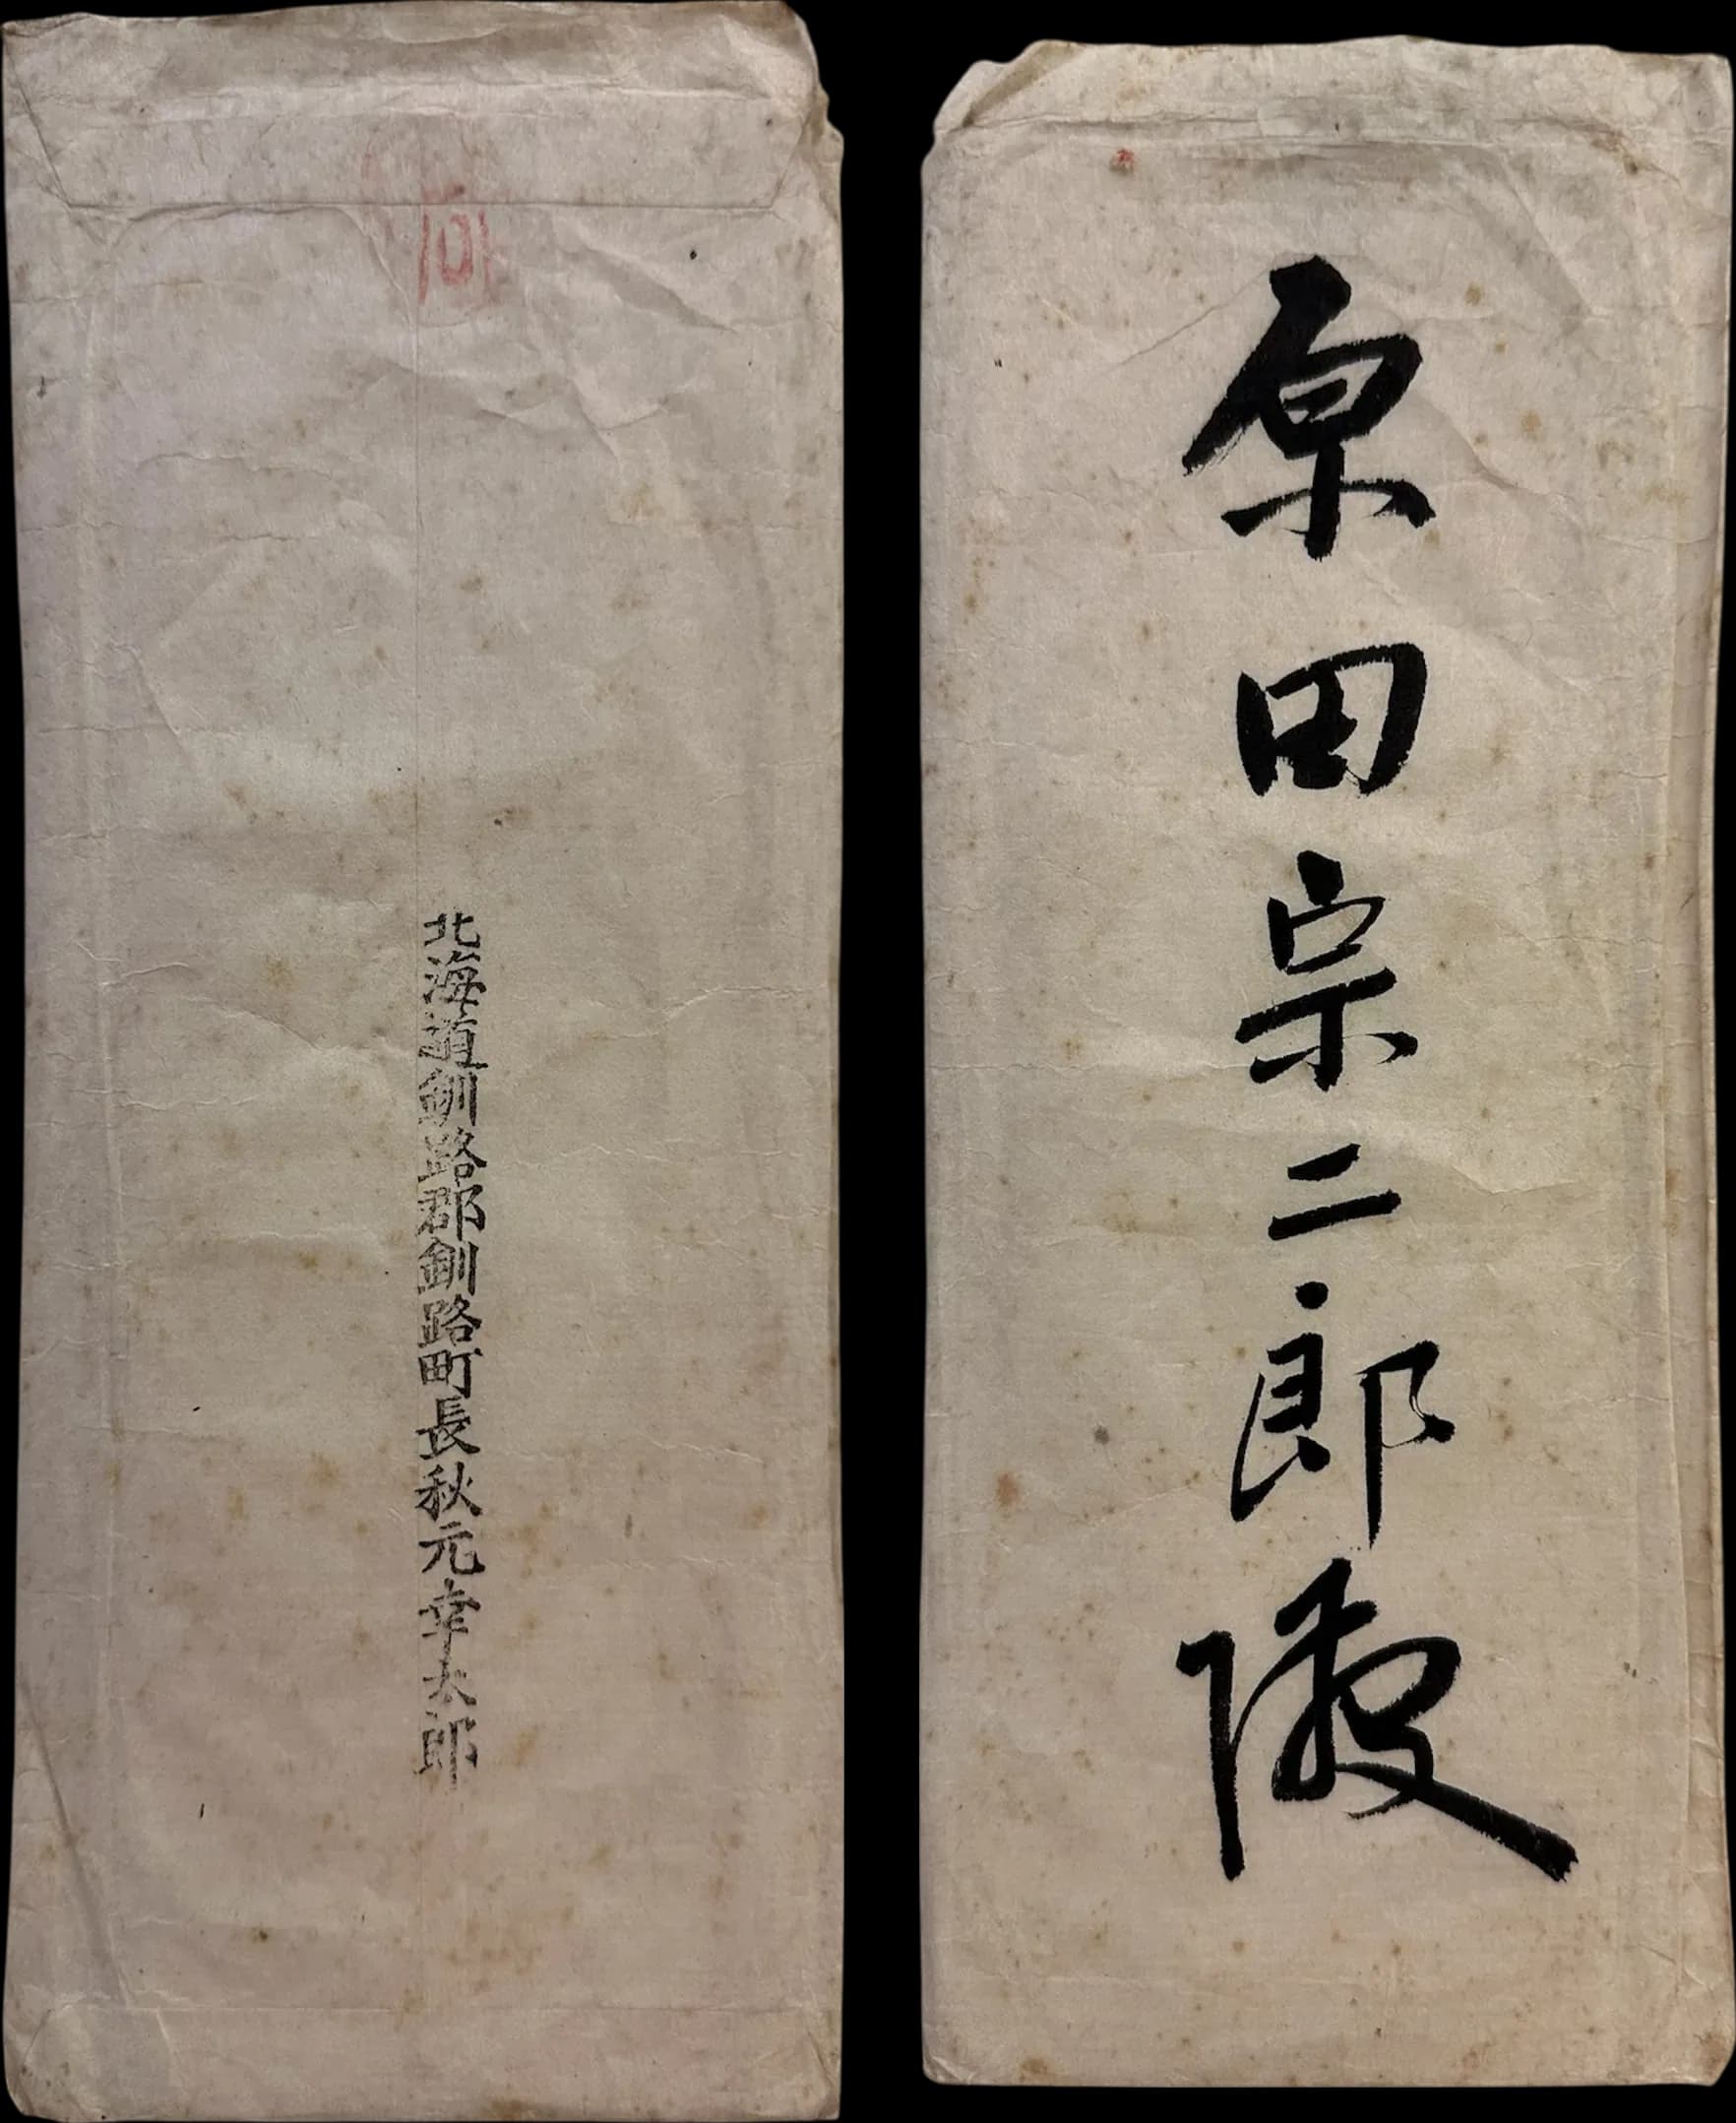 原田宗二郎殿
北海道釧路郡釧路町長秋元幸太郎